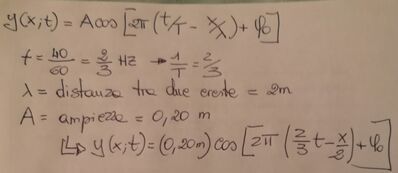 y(x;t) = A cos [2π (t/T - x/λ) + φ₀]
f = 40/60 = 2/3 Hz → 1/T = 2/3
λ = distanza tra due creste = 2m
A = ampiezza = 0,20 m
↳ y(x;t) = (0,20m) cos [2π (2/3 t - x/2) + φ₀]